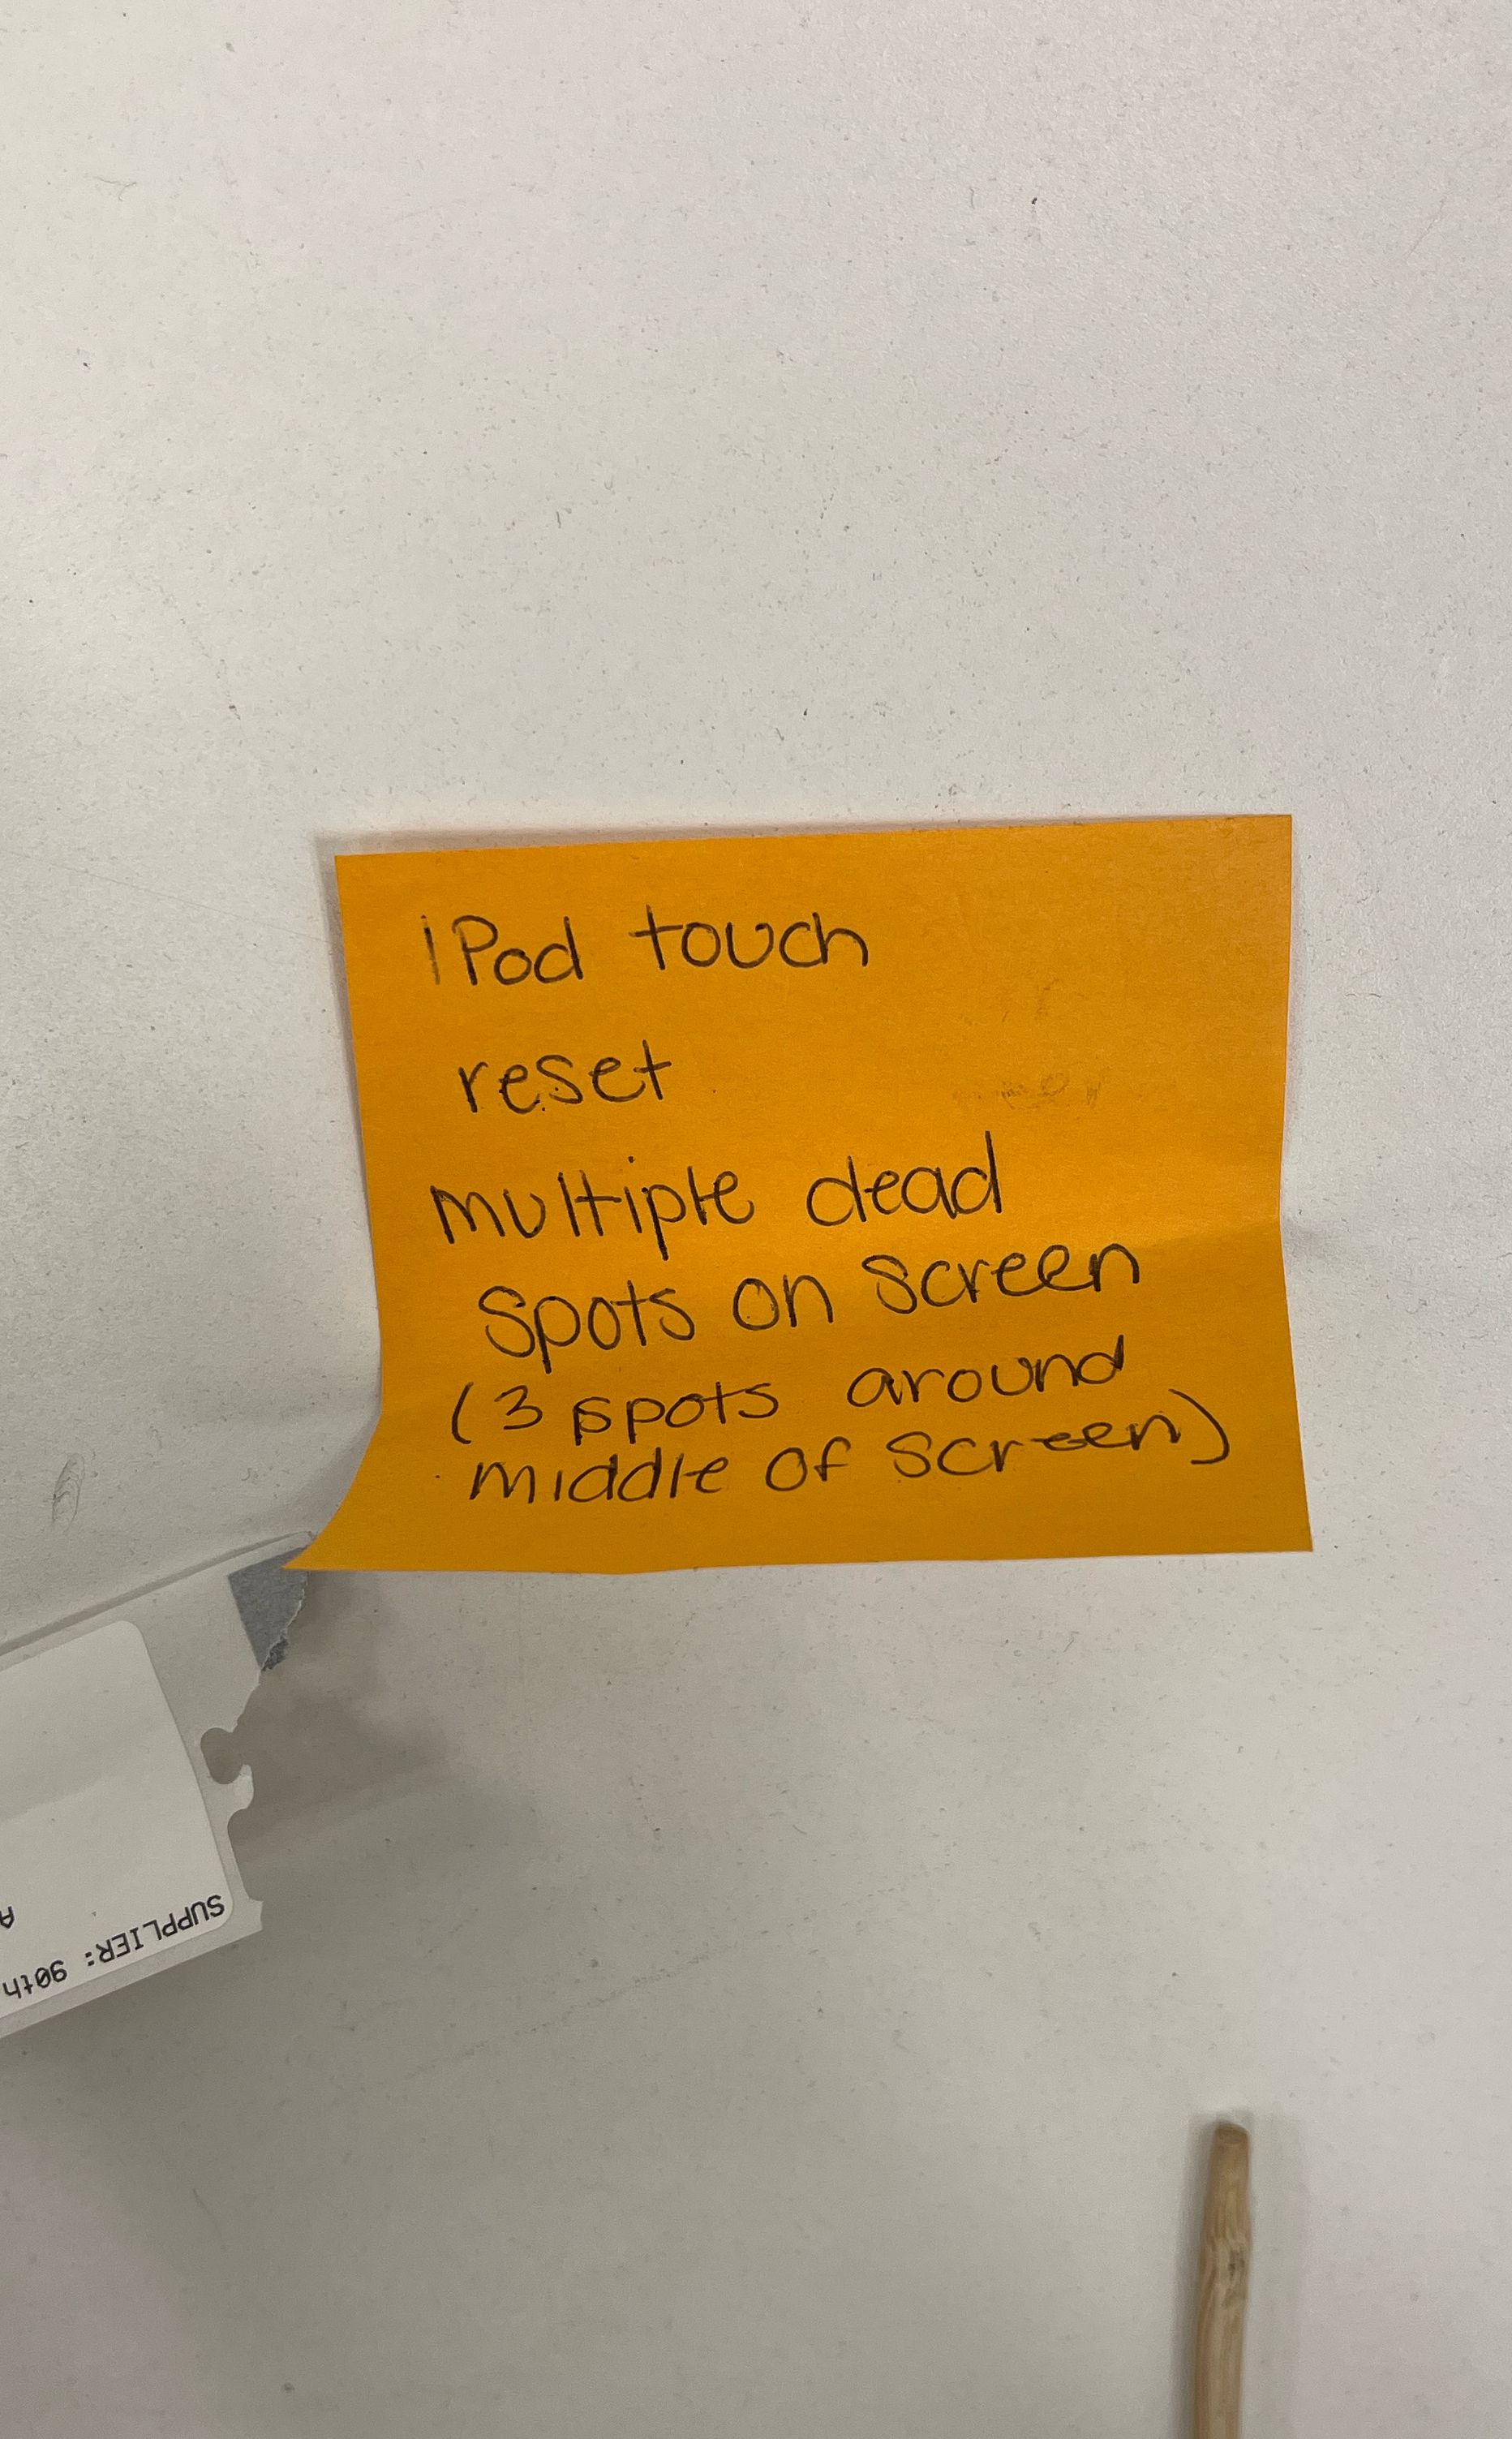 iPod touch
reset
multiple dead
spots on screen
(3 spots around
middle of screen)
SUPPLIER: 90th
A